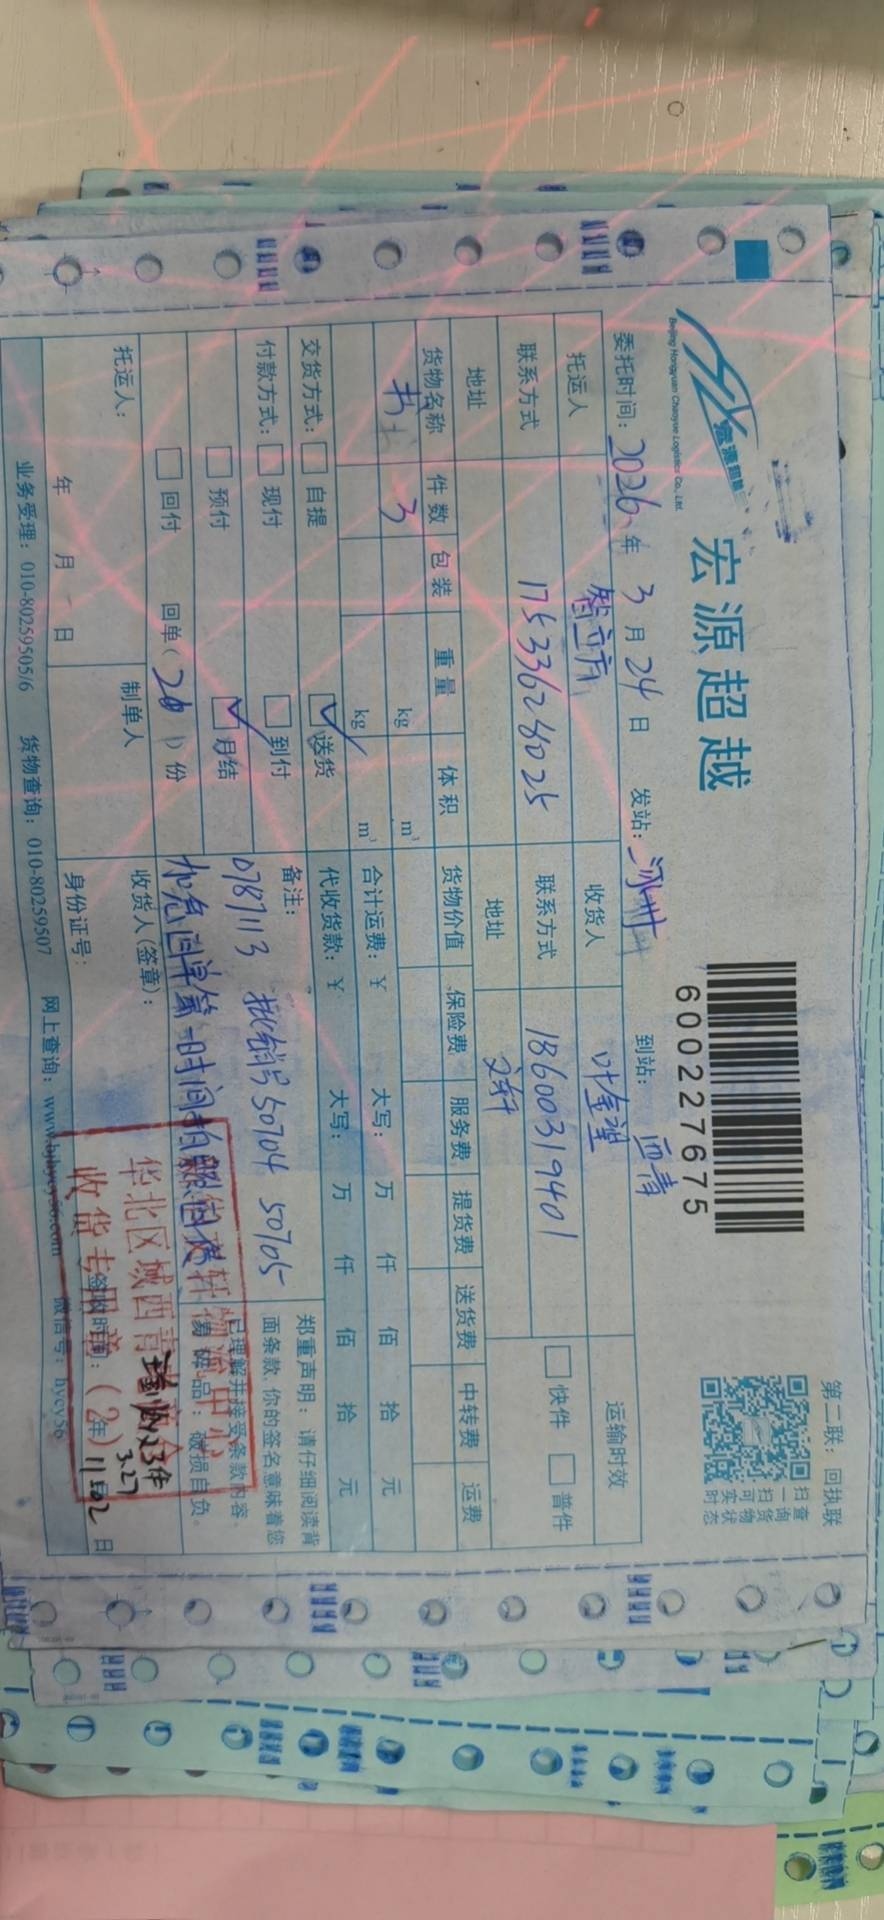 第二联：回执联
宏源超越
Beijing Hongyuan Chaoyue Logistics Co., Ltd.
600227675
扫一扫可实时
查询货物状态
委托时间：2026年3月24日 发站：涿州 到站：西青
托运人 智立方 收货人 叶金理 运输时效
联系方式 17533628025 联系方式 18600319401 快件 普件
地址 地址 文轩
货物名称 件数 包装 重量 体积 货物价值 保险费 服务费 提货费 送货费 中转费 运费
书 3 kg m³
kg m³ 合计运费：¥ 大写： 万 仟 佰 拾 元
交货方式： 自提 送货 代收货款：¥ 大写： 万 仟 佰 拾 元
付款方式： 现付 到付 备注：
预付 月结 0787113 批销号 50704 50705
回付 回单（ ）份 加急回单第一时间拍照回传
郑重声明：请仔细阅读背
面条款，你的签名意味着您
已理解并接受条款内容。
易碎品：破损自负。
托运人： 制单人 收货人(签章)：
年 月 日 身份证号： 签收时间： 年 日
华北区域西青
收货专用章
(2)
收23件
3.27
业务受理：010-80259505/6 货物查询：010-80259507 网上查询：www.bjhycy56.com 微信号：hycy56